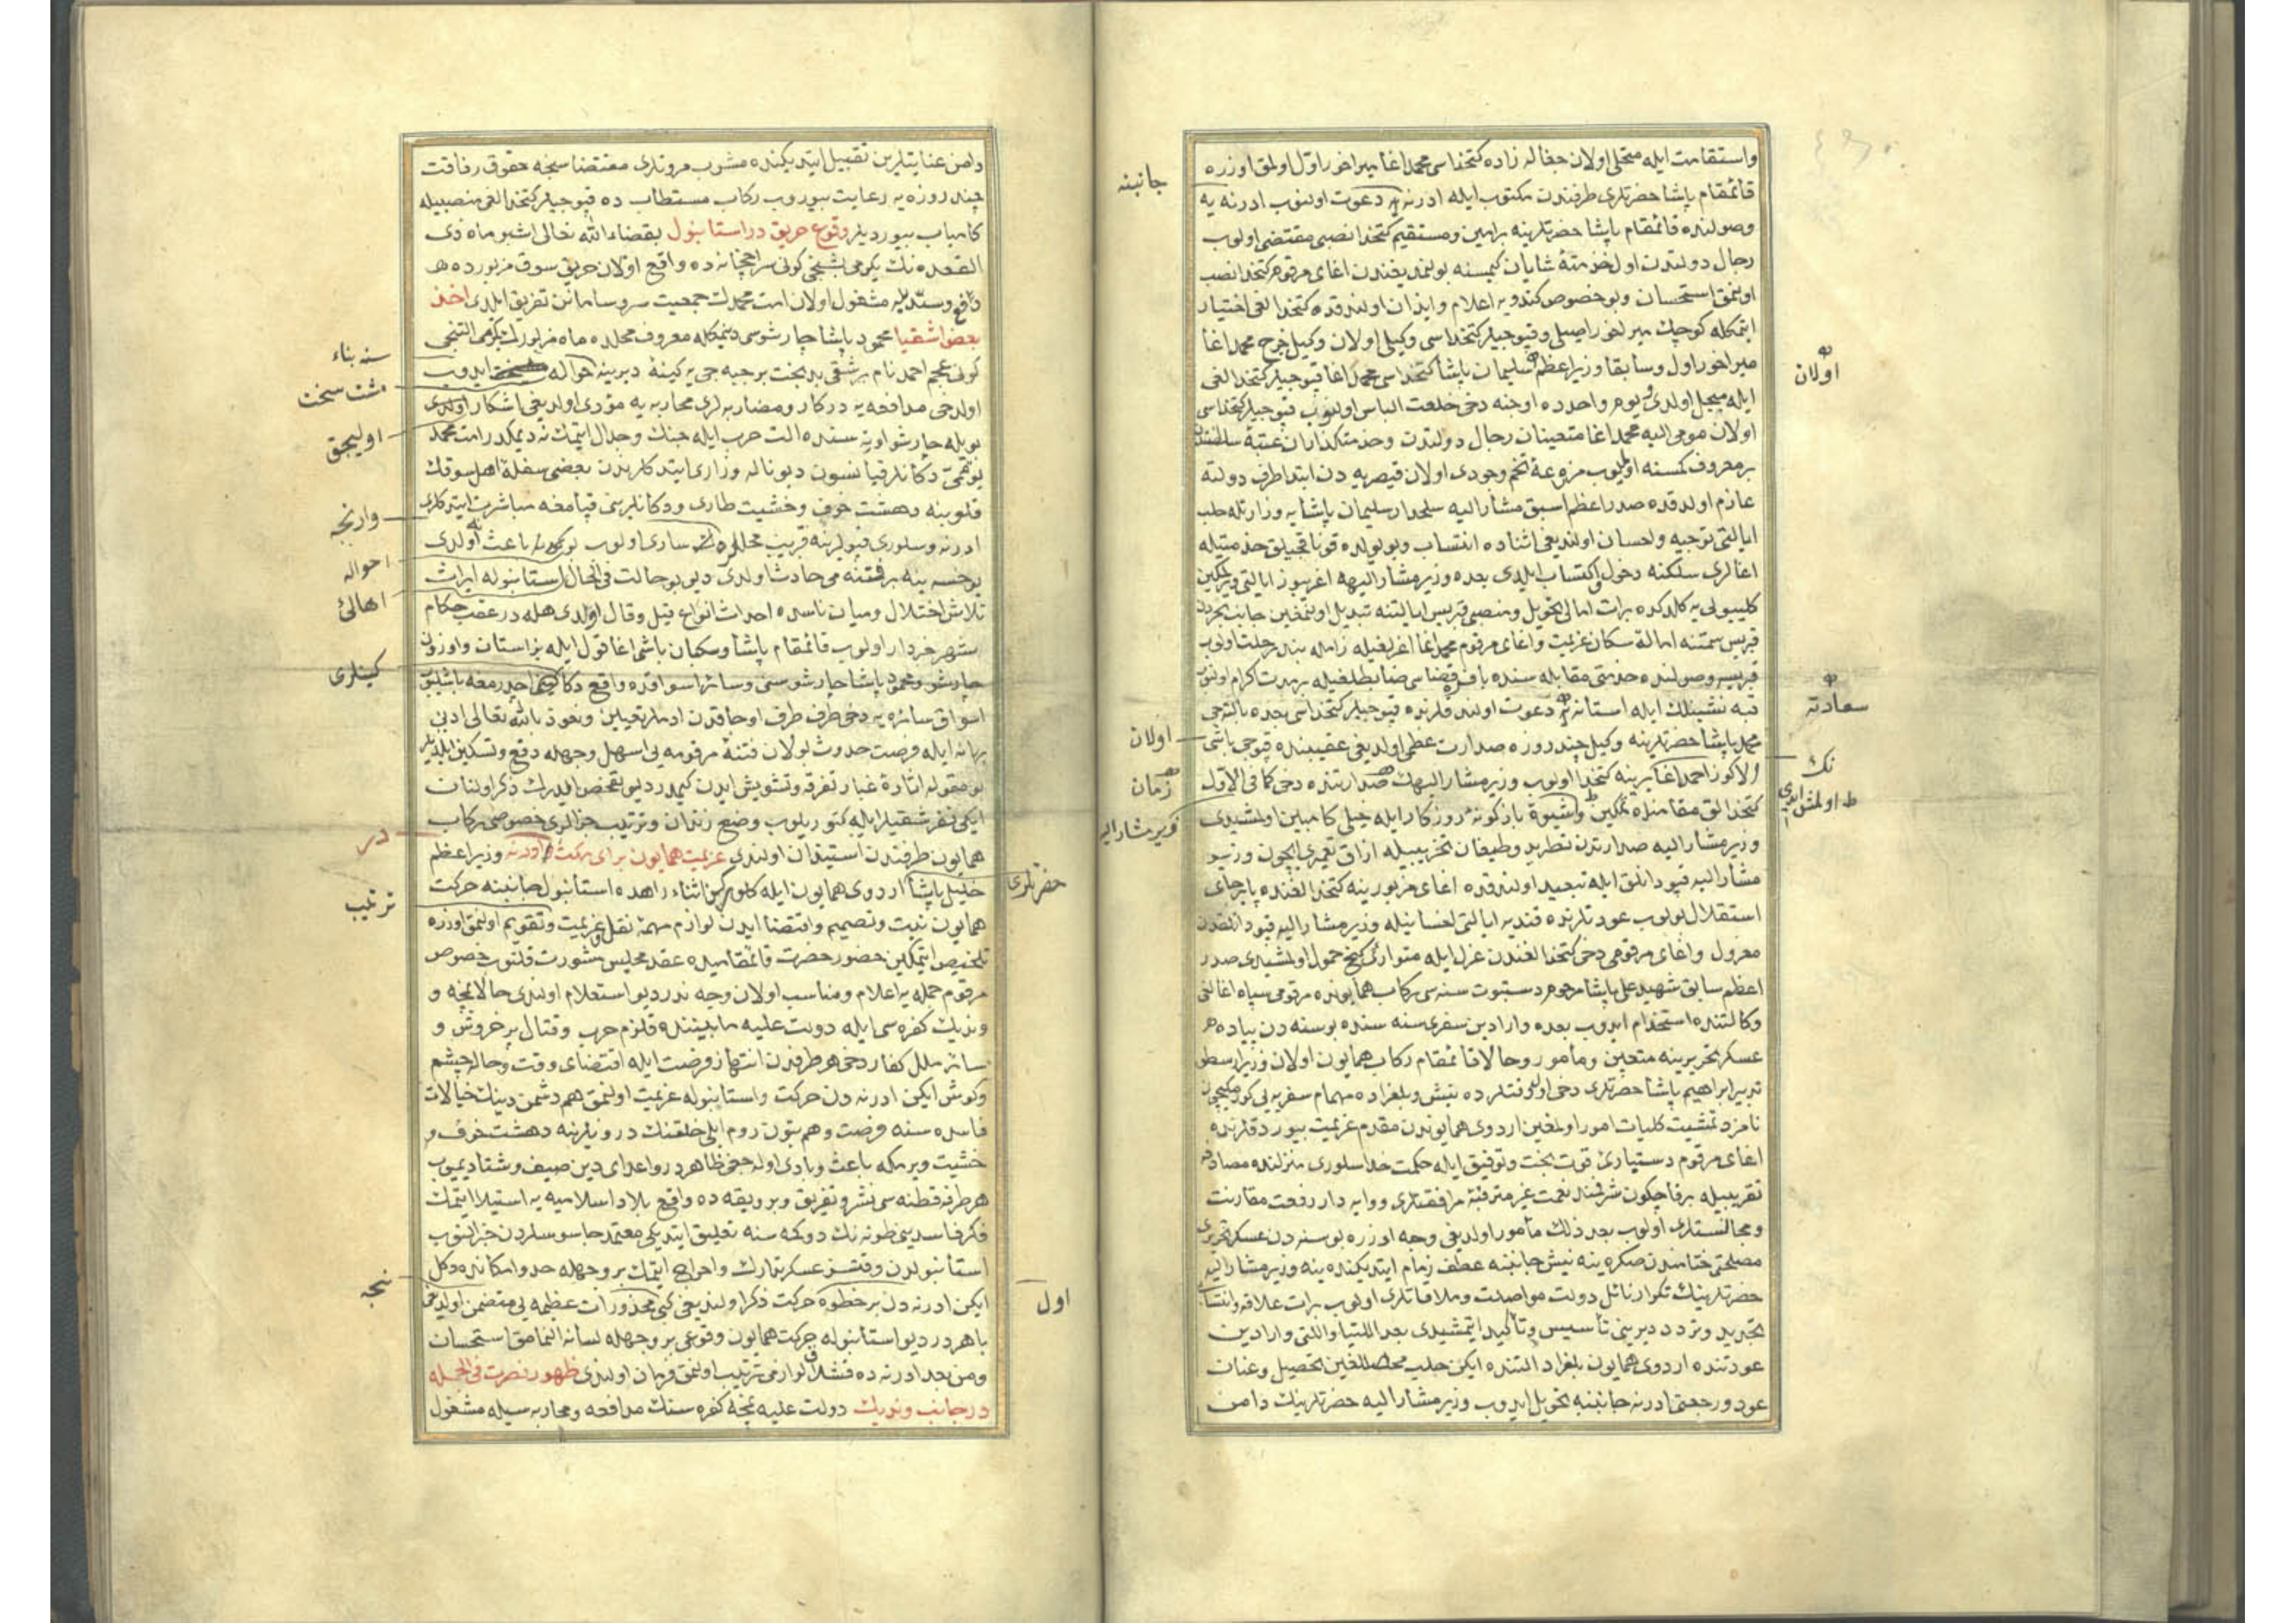 واستقامت ايله متحلى اولان جغاله زاده كتخداسى محمد اغا ميراخور اول اولمق اوزره
قائمقام پاشا حضرتلرى طرفندن مكتوب ايله ادرنه يه دعوت اولنوب ادرنه يه
جانبنه
وصولنده قائمقام پاشا حضرتلرينه برامين ومستقيم كتخدا نصبى مقتضى اولوب
رجال دولتدن اول خدمته شايان كيمسنه بولنمديغندن اغاى مرقوم كتخدا نصب
اولنمق استحسان وبو خصوص كندويه اعلام وايذان اولندقده كتخدالغى اختيار
ايتمكله كوچك ميراخور اصيلى وقپوجيلر كتخداسى وكيلى اولان وكيل خرج محمد اغا
ميراخور اول وسابقا وزير اعظم سليمان پاشا كتخداسى محمد اغا قپوجيلر كتخدالغى
اولان
ايله مبجل اولدى ويوم واحدده اوچنه دخى خلعت الباس اولنوب قپوجيلر كتخداسى
اولان مومى اليه محمد اغا متعينان رجال دولتدن وخدمتكذاران عتبۀ سلطنتدن
بر معروف كمسنه اولوب مزرعۀ تخم وجودى اولان قيصريه دن ابتدا طرف دولته
عازم اولدقده صدر اعظم اسبق مشار اليه سلحدار سليمان پاشايه وزارتله حلب
ايالتى توجيه واحسان اولنديغى اثناده انتساب وبو يولده قوناقجيلق خدمتيله
اغالرى سلكنه دخول واكتساب ايلدى بعده وزير مشار اليهه اغريبوز ايالتى ويرلمكين
كليبولى يه كلدكده برات امالى تحويل ومنصبى قبريس ايالتنه تبديل اولنمغين جانب بحردن
قبريس سمتنه امالۀ سكان عزيمت واغاى مرقوم محمد اغا اغرلغيله زامله بند رحلت اولوب
قبريسه وصولنده خدمتى مقابله سنده باف قضاسى ضابطلغيله برمدت كرام اولنوب
قبه نشينلك ايله استانه يه دعوت اولندقلرنده قپوجيلر كتخداسى بعده بالتجى
سعادته
محمد پاشا حضرتلرينه وكيل چند روزه صدارت عظمى اولديغى عقيبنده قپوجى باشى
اولان
الاكوز احمد اغا يرينه كتخدا اولوب وزير مشار اليهك صدارتنده دخى كما فى الاول
نك
زمان
كتخدالق مقامنده تمكين وشيوۀ بازكونۀ روزكار ايله خيلى كامبين اولمشيدى
وزير مشار اليه صدارتدن تطريد وطيفان تخريبيله ازاق تعميرى ايچون وزير
وزير مشار اليه
مشار اليه قپودانلق ايله تبعيد اولندقده اغاى مزبور ينه كتخدالغنده پابرجاى
استقلال اولوب عودتلرنده قنديه ايالتى احسانيله وزير مشار اليه قپودانلقدن
معزول واغاى مرقومى دخى كتخدالغندن عزل ايله متوارئ كنج خمول اولمشيدى صدر
اعظم سابق شهيد على پاشا مرحوم دستبوت سنه سى ركاب همايونده مرقومى سپاه اغالغى
وكالتنده استخدام ايدوب بعده وارادين سفرى سنه سنده بوسنه دن پياده
عسكر تحريرينه متعين ومأمور وحالا قائمقام ركاب همايون اولان وزير ارسطو
تدبير ابراهيم پاشا حضرتلرى دخى اول وقتلرده نيش وبلغراده مهمام سفريه يى كورمكيچون
نامزد تمشيت كليات امور اولمغين اردوى همايوندن مقدم عزيمت بيوردقلرنده
اغاى مرقوم دستيارئ قوت بخت وتوفيق ايله حكمت خدا سلورى منزلنده مصادفه
تقريبيله برقاچ كون شرفند نعمت غير مترقبۀ مرافقتلرى ووايه دار رفعت مقارنت
ومجالستلرى اولوب بعد ذلك مأمور اولديغى وجه اوزره بوسنه دن عسكر تحريرى
مصلحتى ختامندن صكره ينه نيش جانبنه عطف زمام ايتديكنده ينه وزير مشار اليه
حضرتلرينك تكرار نائل دولت مواصلت وملاقاتلرى اولوب برات علاقه وانتسابى
تجديد وتردد ديرينى تأسيس وتأكيد ايتمشيدى بعد اللتيا واللتى وارادين
عودتنده اردوى همايون بلغراد التنده ايكن جلب محصللغين تحصيل وعنان
عود ورجعتى ادرنه جانبنه تحويل ايدوب وزير مشار اليه حضرتلرينك دامن
دامن عنايتلرين تقبيل ايتديكنده مشوب مروتلرى مقتضا سنجه حقوق رفاقت
چند روزه يه رعايت بيوروب ركاب مستطابده قپوجيلر كتخدالغى منصبيله
كامياب بيورديلر وقوع حريق در استانبول بقضاء الله تعالى اشبو ماه ذى
القعده نك يكرمى بشنجى كونى سراجخانه ده واقع اولان حريق سوق مزبورده
دافع وسديله مشغول اولان امت محمدك جمعيت سروسامانن تفريق ايلدى اخذ
بعض اشقيا محمود پاشا چارشوسى ديمكله معروف محلده ماه مزبورك يكرمى التنجى
كونى عجم احمد نام بر شقى بدبخت بر جبه جى يه كينۀ ديرينه حواله ايدوب
سنه بناء
مشت سخت
اولدخى مدافعه يه دركار ومضاربه لرى محاربه يه مؤدى اولديغى اشكار اولدى
اوليجق
بويله چارشو اورته سنده الت حرب ايله جنك وجدال ايتمك نه ديمكدر امت محمد
يوقمى دكانلر قپانسون ديو ناله وزارى ايتدكلرندن بعضى سفلۀ اهل سوقك
قلوبنه دهشت خوف وخشيت طارى ودكانلرينى قپامغه مباشرت ايتدكلرى
وارنجه
ادرنه وسلورى قپولرينه قريب محللره دك سارى اولوب باعث اولدى
يوخسه ينه بر فتنه مى حادث اولدى ديو بو حالت فى الحال استانبوله ايراث
احواله
اهالئ
تلاش اختلال وميان ناسده احداث انواع قيل وقال اولدى هله در عقب حكام
شهر خبردار اولوب قائمقام پاشا وسكبان باشى اغا قول ايله بزاستان واوزون
چارشو ومحمود پاشا چارشوسنى وسائر اسواقده واقع دكاكينى اچدرمغه باشليوب
كپنلرى
اسواق سائره يه دخى طرف طرف اوجاقدن ادملر تعيين ونعوذ بالله تعالى ادنى
بهانه ايله فرصت حدوث بولان فتنۀ مرقومه يى اسهل وجهله دفع وتسكين ايلديلر
بو مقوله اثارۀ غبار تفرقه وتشويش ايدن كيمدر ديو تفحص ايدرك ذكر اولنان
ايكى نفر شقيلر ايله كتوريلوب وضع زندان وترتيب جزالرى خصوصى ركاب
همايون طرفندن استيذان اولندى عزيمت همايون براى حركت ادرنه وزير اعظم
در
خليل پاشا اردوى همايون ايله كلوركن اثناء راهده استانبول جانبنه حركت
حضرتلرى
همايون نيت وتصميم واقتضا ايدن لوازم مهمۀ نقل وعزيمت وتقويم اولنمق اوزره
ترتيب
تلخيص ايتمكين حضور حضرت قائمقاميده عقد مجليس مشورت قلنوب خصوص
مرقوم جمله يه اعلام ومناسب اولان وجه ندر ديو استعلام اولندى حالا نمچه و
ونديك كفره سى ايله دولت عليه مابيننده قلزم حرب وقتال پرخروش و
سائر ملل كفار دخى هر طرفدن انتهاز فرصت ايله اقتضاى وقت وحاله چشم
وكوش ايكن ادرنه دن حركت واستانبوله عزيمت اولنمق هم دشمن دينك خيالات
فاسده سنه فرصت وهم بتون روم ايلى خلقنك درونلرينه دهشت خوف و
خشيت ويرمكه باعث وبادى اوله جغى ظاهردر واعداى دين صيف وشتا ديميوب
هر طرفه قطنه سى نشر وتفريق وبر دقيقه ده واقع بلاد اسلاميه يه استيلا ايتمك
فكر فاسدينى طونه نك دوكمه سنه تعليق ايتديكى معتمد جاسوسلردن خبر النوب
استانبولدن وقتيله عسكر تدارك واخراج ايتمك بر وجهله حد وامكانده دكل
ايكن ادرنه دن بر خطوه حركت ذكر اولنديغى كبى محذورات عظيمه يى متضمن اولديغى
نيجه
اول
باهردر ديو استانبوله حركت همايون وقوعى بر وجهله لسانه النمامق استحسان
ومن بعد ادرنه ده قشلاق لوازمى ترتيب اولنمق فرمان اولندى ظهور نصرت فى الجمله
در جانب ونديك دولت عليه نمچۀ كفره سنك مدافعه ومحاربه سيله مشغول